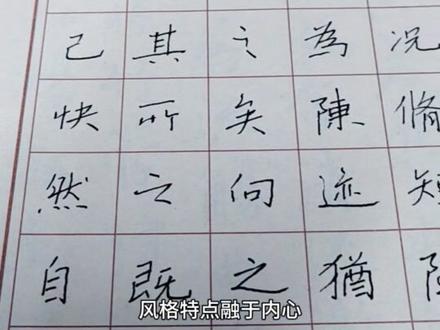 己快然自
其所之既
之矣向之
為陳迹猶
况脩短
风格特点融于内心